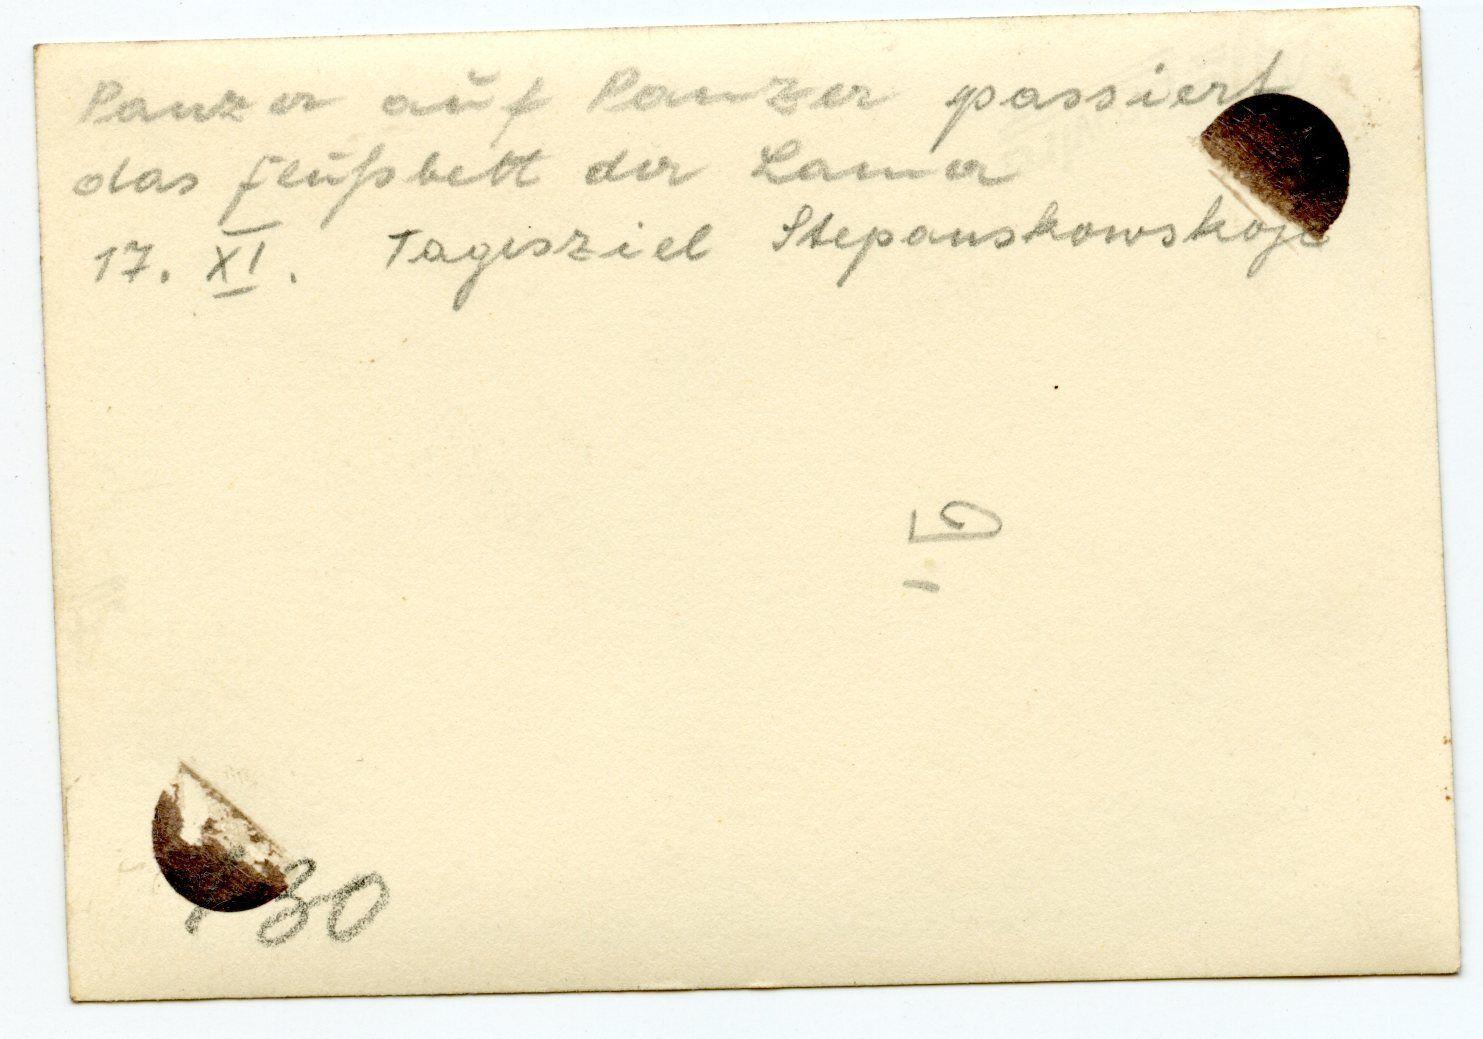 Panzer auf Panzer passiert
das Flußbett der Lamer
17. XI. Tagesziel Stepanskowskoje
30